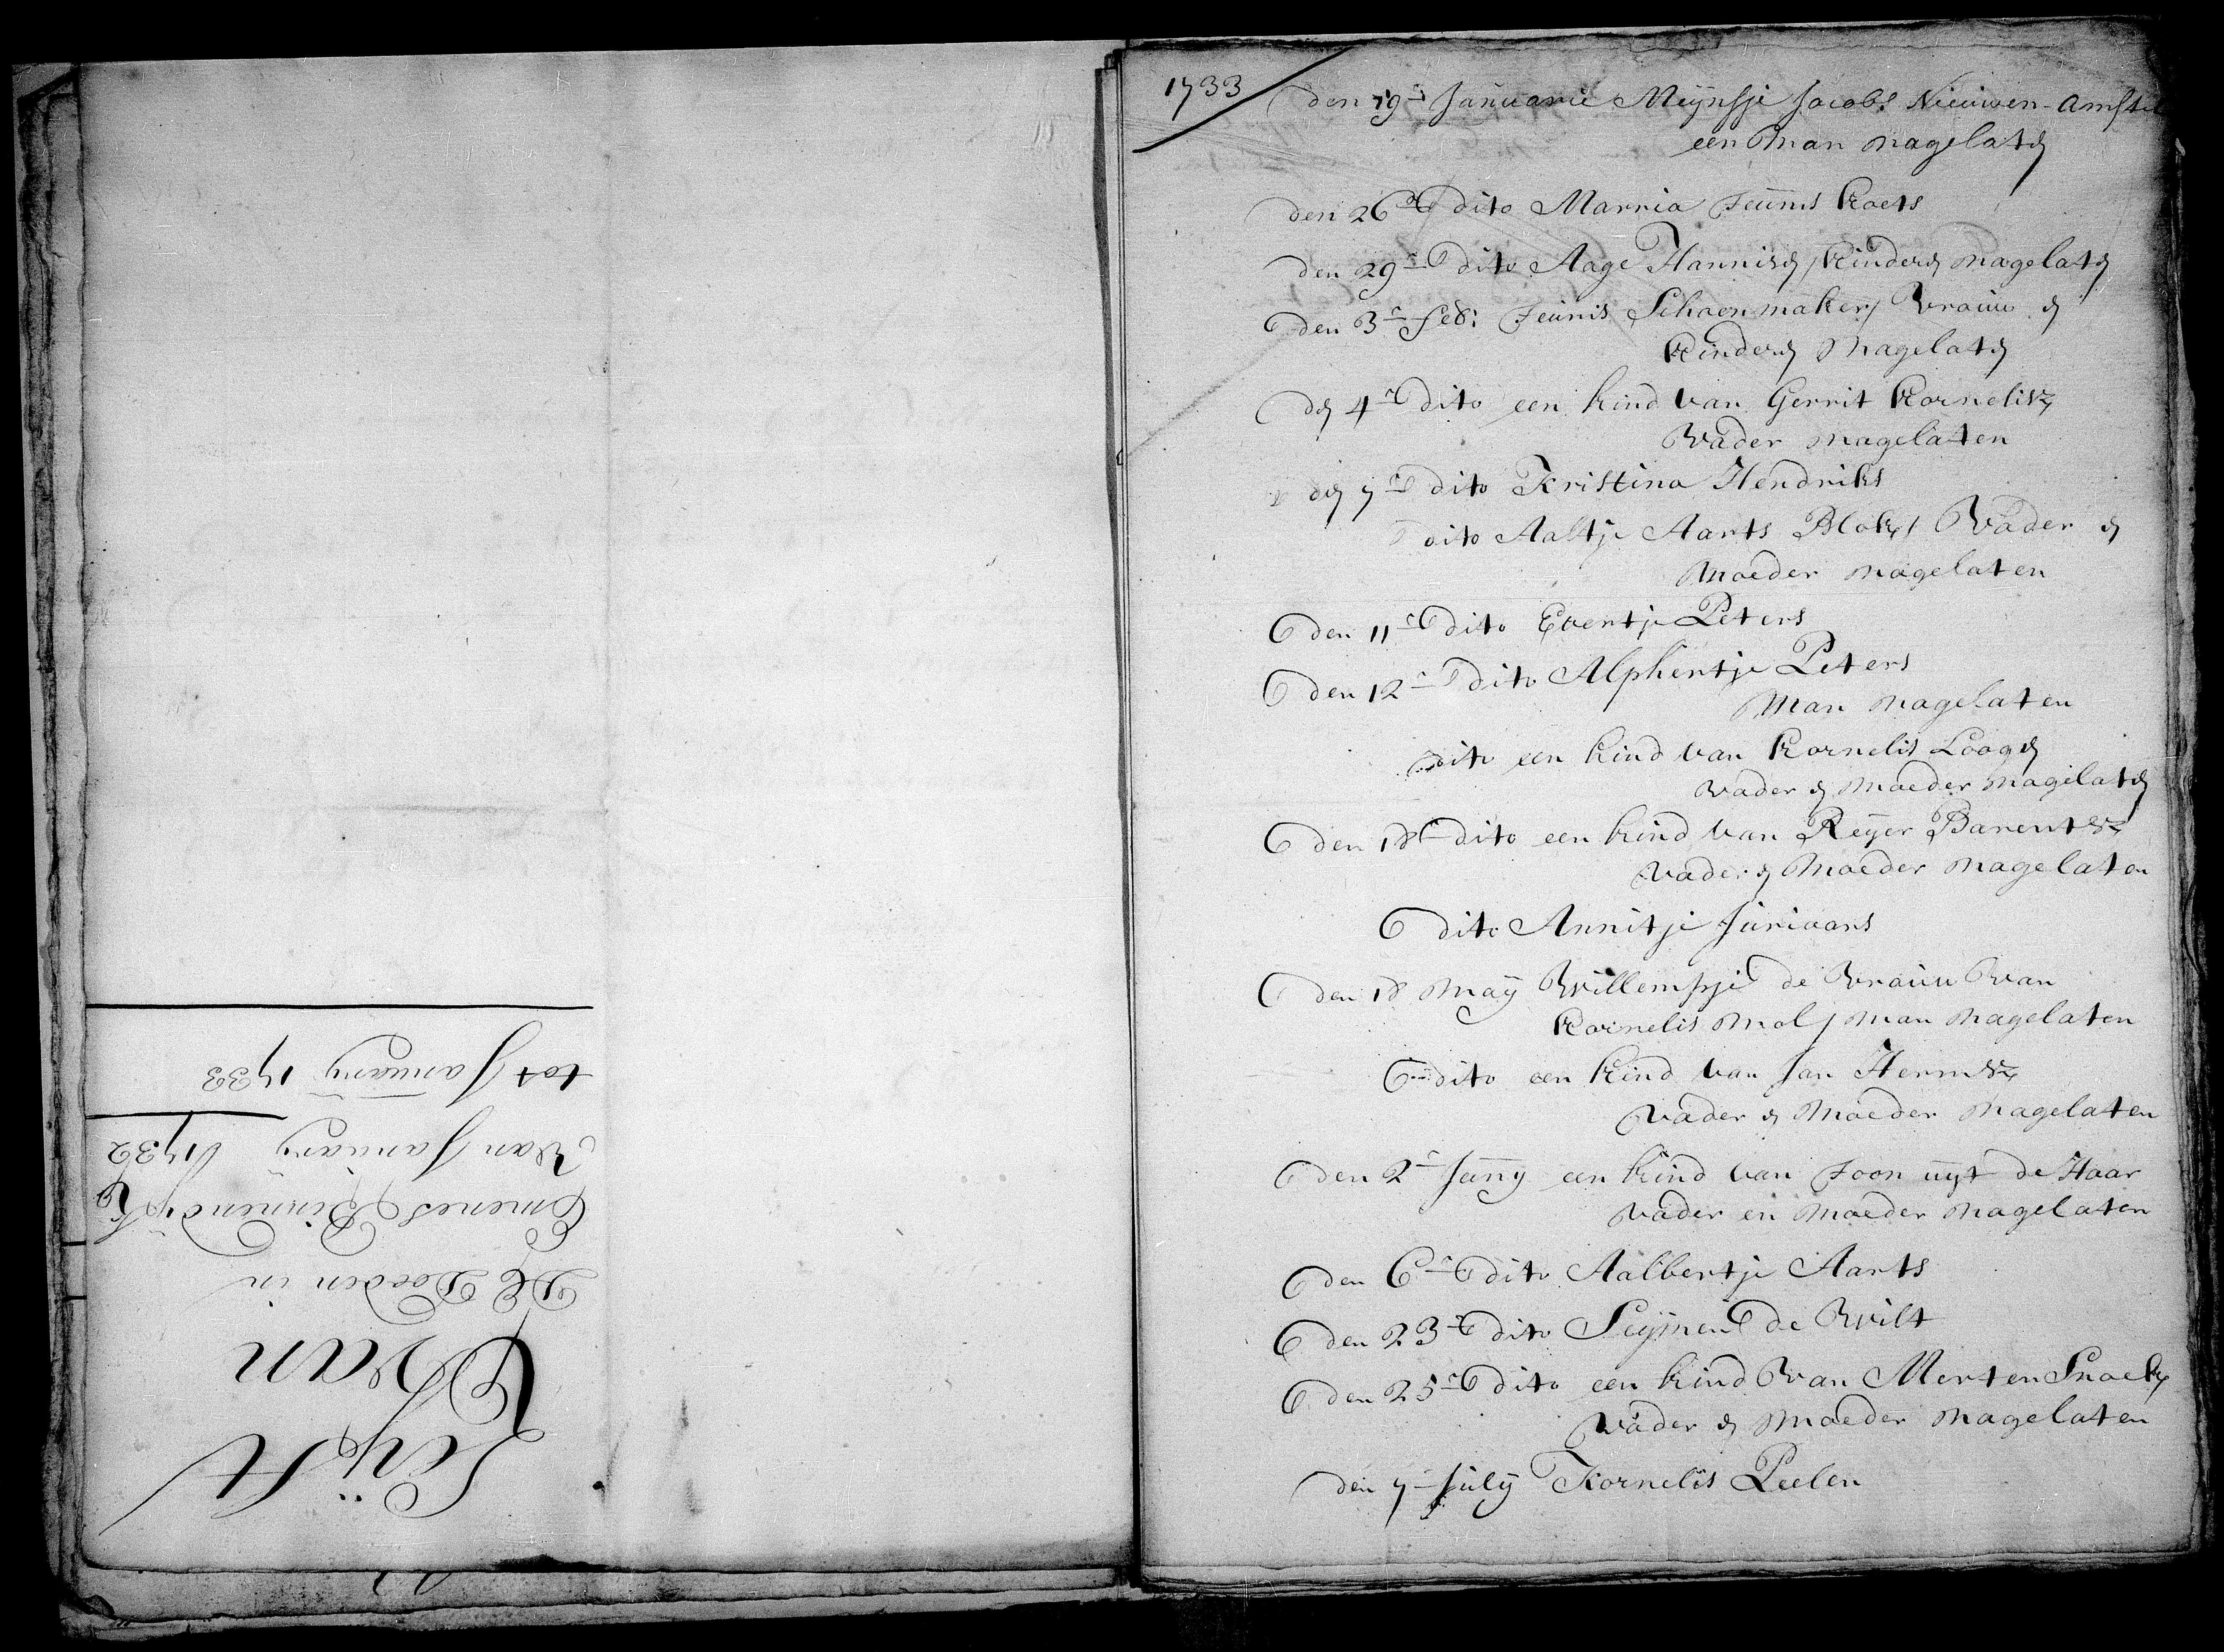 Leÿst
Van
De Dooden in
Emenes Binnendÿk
Van January 1732
tot January 1733
1733
den 19e Januarie Meÿnsje Jacobs Nieuwen-Amstel
een Man nagelaten
den 26e dito Marria Teunis Koets
den 29e dito Aage Hannisen / Kinderen nagelaten
den 3e feb: Teunis Schoenmaker / Vrouw en
Kinderen Nagelaten
den 4e dito een kind van Gerrit Kornelisz
Vader nagelaten
den 7e dito Kristina Hendriks
dito Aaltje Aarts Blok / Vader en
Moeder nagelaten
den 11e dito Evertje Peters
den 12e dito Alphertje Peters
Man nagelaten
dito een kind van Kornelis Loogen
vader en moeder nagelaten
den 18e dito een kind van Reÿer Barentsz
Vader en Moeder nagelaten
dito Annitje Juriaans
den 18 Maÿ Willempje de Vrouw Van
Kornelis Mol / man nagelaten
dito een kind van Jan Hermsz
Vader en Moeder nagelaten
den 2e Junÿ een kind van Toon uÿt de Haar
Vader en Moeder nagelaten
den 6e dito Aalbertje Aarts
den 23e dito Seÿmen de Wilt
den 25e dito een kind Van Merten Snoek
Vader en Moeder nagelaten
den 7e Julÿ Kornelis Peelen